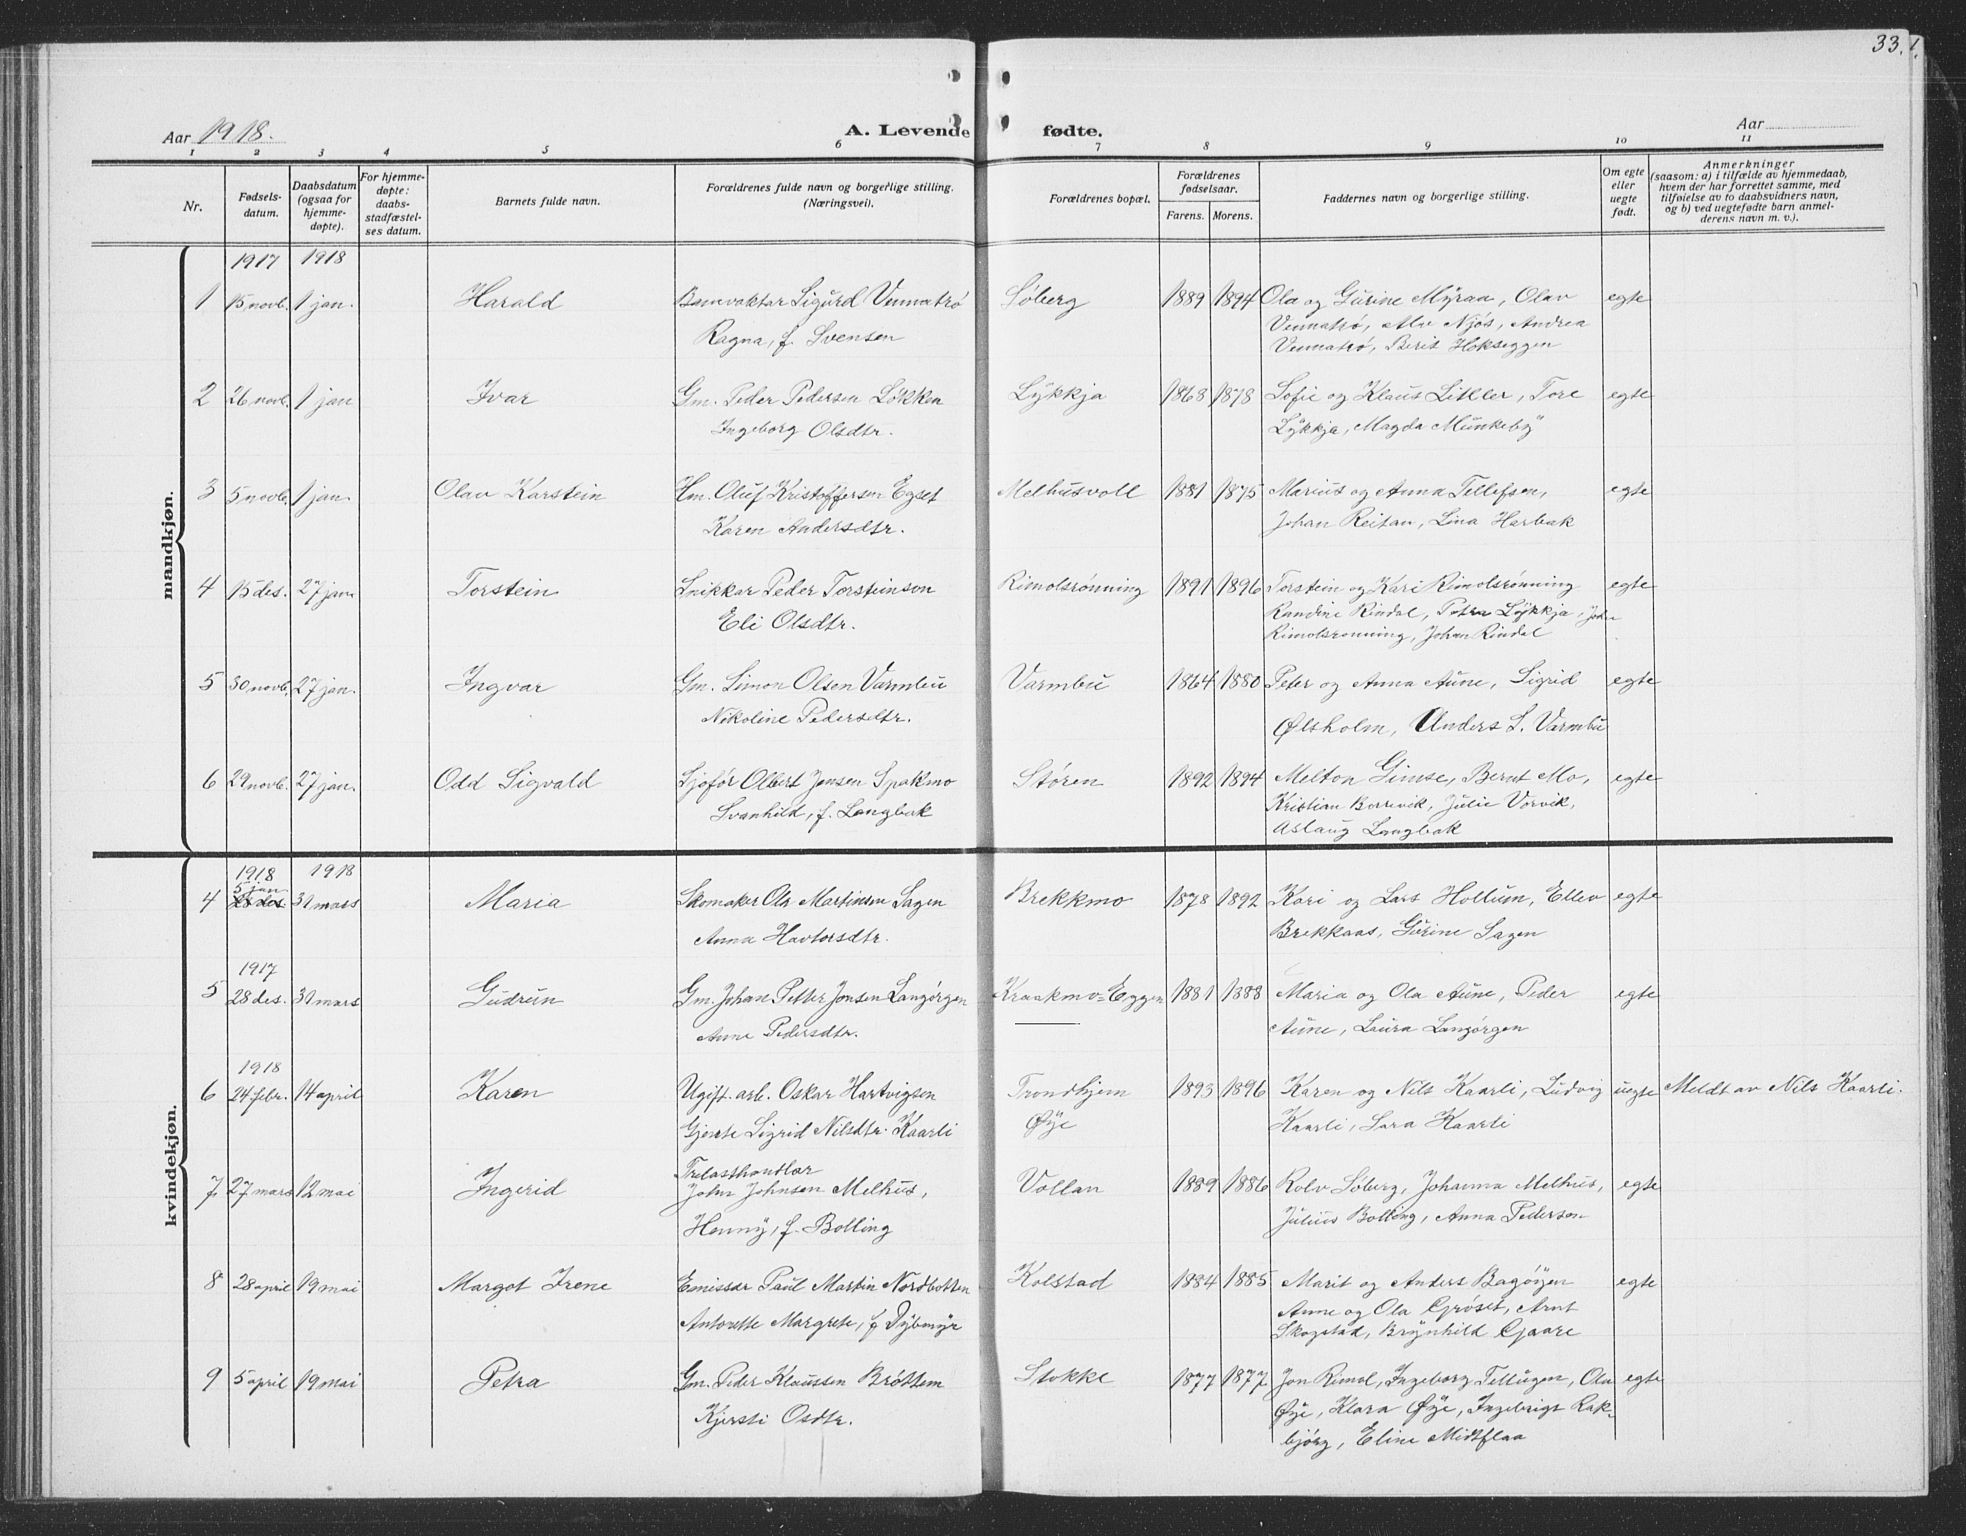 33.
Aar 1918.
A. Levende fødte.
Aar
1 2 3 4 5 6 7 8 9 10 11
Nr.
Fødsels-
datum.
Daabsdatum
(ogsaa for
hjemme-
døpte).
For hjemme-
døpte:
daabs-
stadfæstel-
ses datum.
Barnets fulde navn.
Forældrenes fulde navn og borgerlige stilling.
(Næringsvei).
Forældrenes bopæl.
Forældrenes
fødselsaar.
Farens. Morens.
Faddernes navn og borgerlige stilling.
Om egte
eller
uegte
født.
Anmerkninger
(saasom: a) i tilfælde av hjemmedaab,
hvem der har forrettet samme, med
tilføielse av to daabsvidners navn,
og b) ved uegtefødte barn anmel-
derens navn m. v.).
mandkjøn.
1917 1918
1 15 novb. 1 jan. Harald Banevaktar Sigurd Vennatrø Søberg 1889 1894 Ola og Gurine Myraa, Olav egte
Ragna, f. Svensen Vennatrø, Alv Njøs, Andrea
Vennatrø, Berit Hokseggen
2 26 novb. 1 jan Ivar Gm. Peder Pedersen Løkken Lykkja 1868 1878 Sofie og Klaus Litler, Tore egte
Ingeborg Olsdtr. Lykkja, Magda Munkeby
3 5 novb. 1 jan. Olav Karstein Hm. Oluf Kristoffersen Egset Melhusvoll 1881 1875 Marius og Anna Tellefsen, egte
Karen Andersdtr. Johan Reitan, Lina Harbak
4 15 des. 27 jan. Torstein Snikkar Peder Torsteinson Rimolsrønning 1891 1896 Torstein og Kari Rimolsrønning egte
Eli Olsdtr. Randine Rindal, Petra Lykkja, John
Rimolsrønning, Johan Rindal
5 30 novb. 27 jan. Ingvar Gm. Simon Olsen Varmbu Varmbu 1864 1880 Peter og Anna Aune, Sigrid egte
Nikoline Pedersdtr. Ølsholm, Anders S. Varmbu
6 29 novb. 27 jan. Odd Sigvald Sjofør Olbert Jensen Spakmo Støren 1892 1894 Melton Gimse, Bernt Mo, egte
Svanhild, f. Langbak Kristian Berrevik, Julie Vorvik,
Aslaug Langbak
kvindekjøn.
1918 1918
5 jan
4 28 des 31 mars Maria Skomaker Ola Martinsen Sagen Brekkmo 1878 1892 Kari og Lars Hollum, Ellev egte
Anna Havtorsdtr. Brekkaas, Gurine Sagen
1917
5 28 des. 31 mars Gudrun Gm. Johan Petter Jonsen Langørgen Kraakmo=Eggen 1881 1888 Maria og Ola Aune, Peder egte
Anne Pedersdtr. Aune, Laura Langørgen
1918
6 24 febr. 14 april Karen Ugift arb. Oskar Hartvigsen Trondhjem 1893 1896 Karen og Nils Kaarli, Ludvig uegte Meldt av Nils Kaarli.
Gjente Sigrid Nilsdtr. Kaarli Øye Kaarli, Sara Kaarli
Trelasthandlar
7 27 mars 12 mai Ingerid John Johnsen Melhus, Vollan 1889 1886 Rolv Søberg, Johanna Melhus, egte
Henny, f. Bolling Julius Bolling, Anna Pedersen
8 28 april 19 mai Margot Irene Emissær Paul Martin Nordbotten Kolstad 1884 1885 Marit og Anders Bagøyen egte
Antonette Margrete, f Dybmyr Anne og Ola Grøset, Arnt
Skogstad, Brynhild Gjaare
9 5 april 19 mai Petra Gm. Peder Klaussen Brøttem Stokke 1877 1877 Jon Rimol, Ingeborg Teltugen, Ola egte
Kjersti Osdtr. Øye, Klara Øye, Ingebrigt Rak-
bjørg, Eline Midtflaa